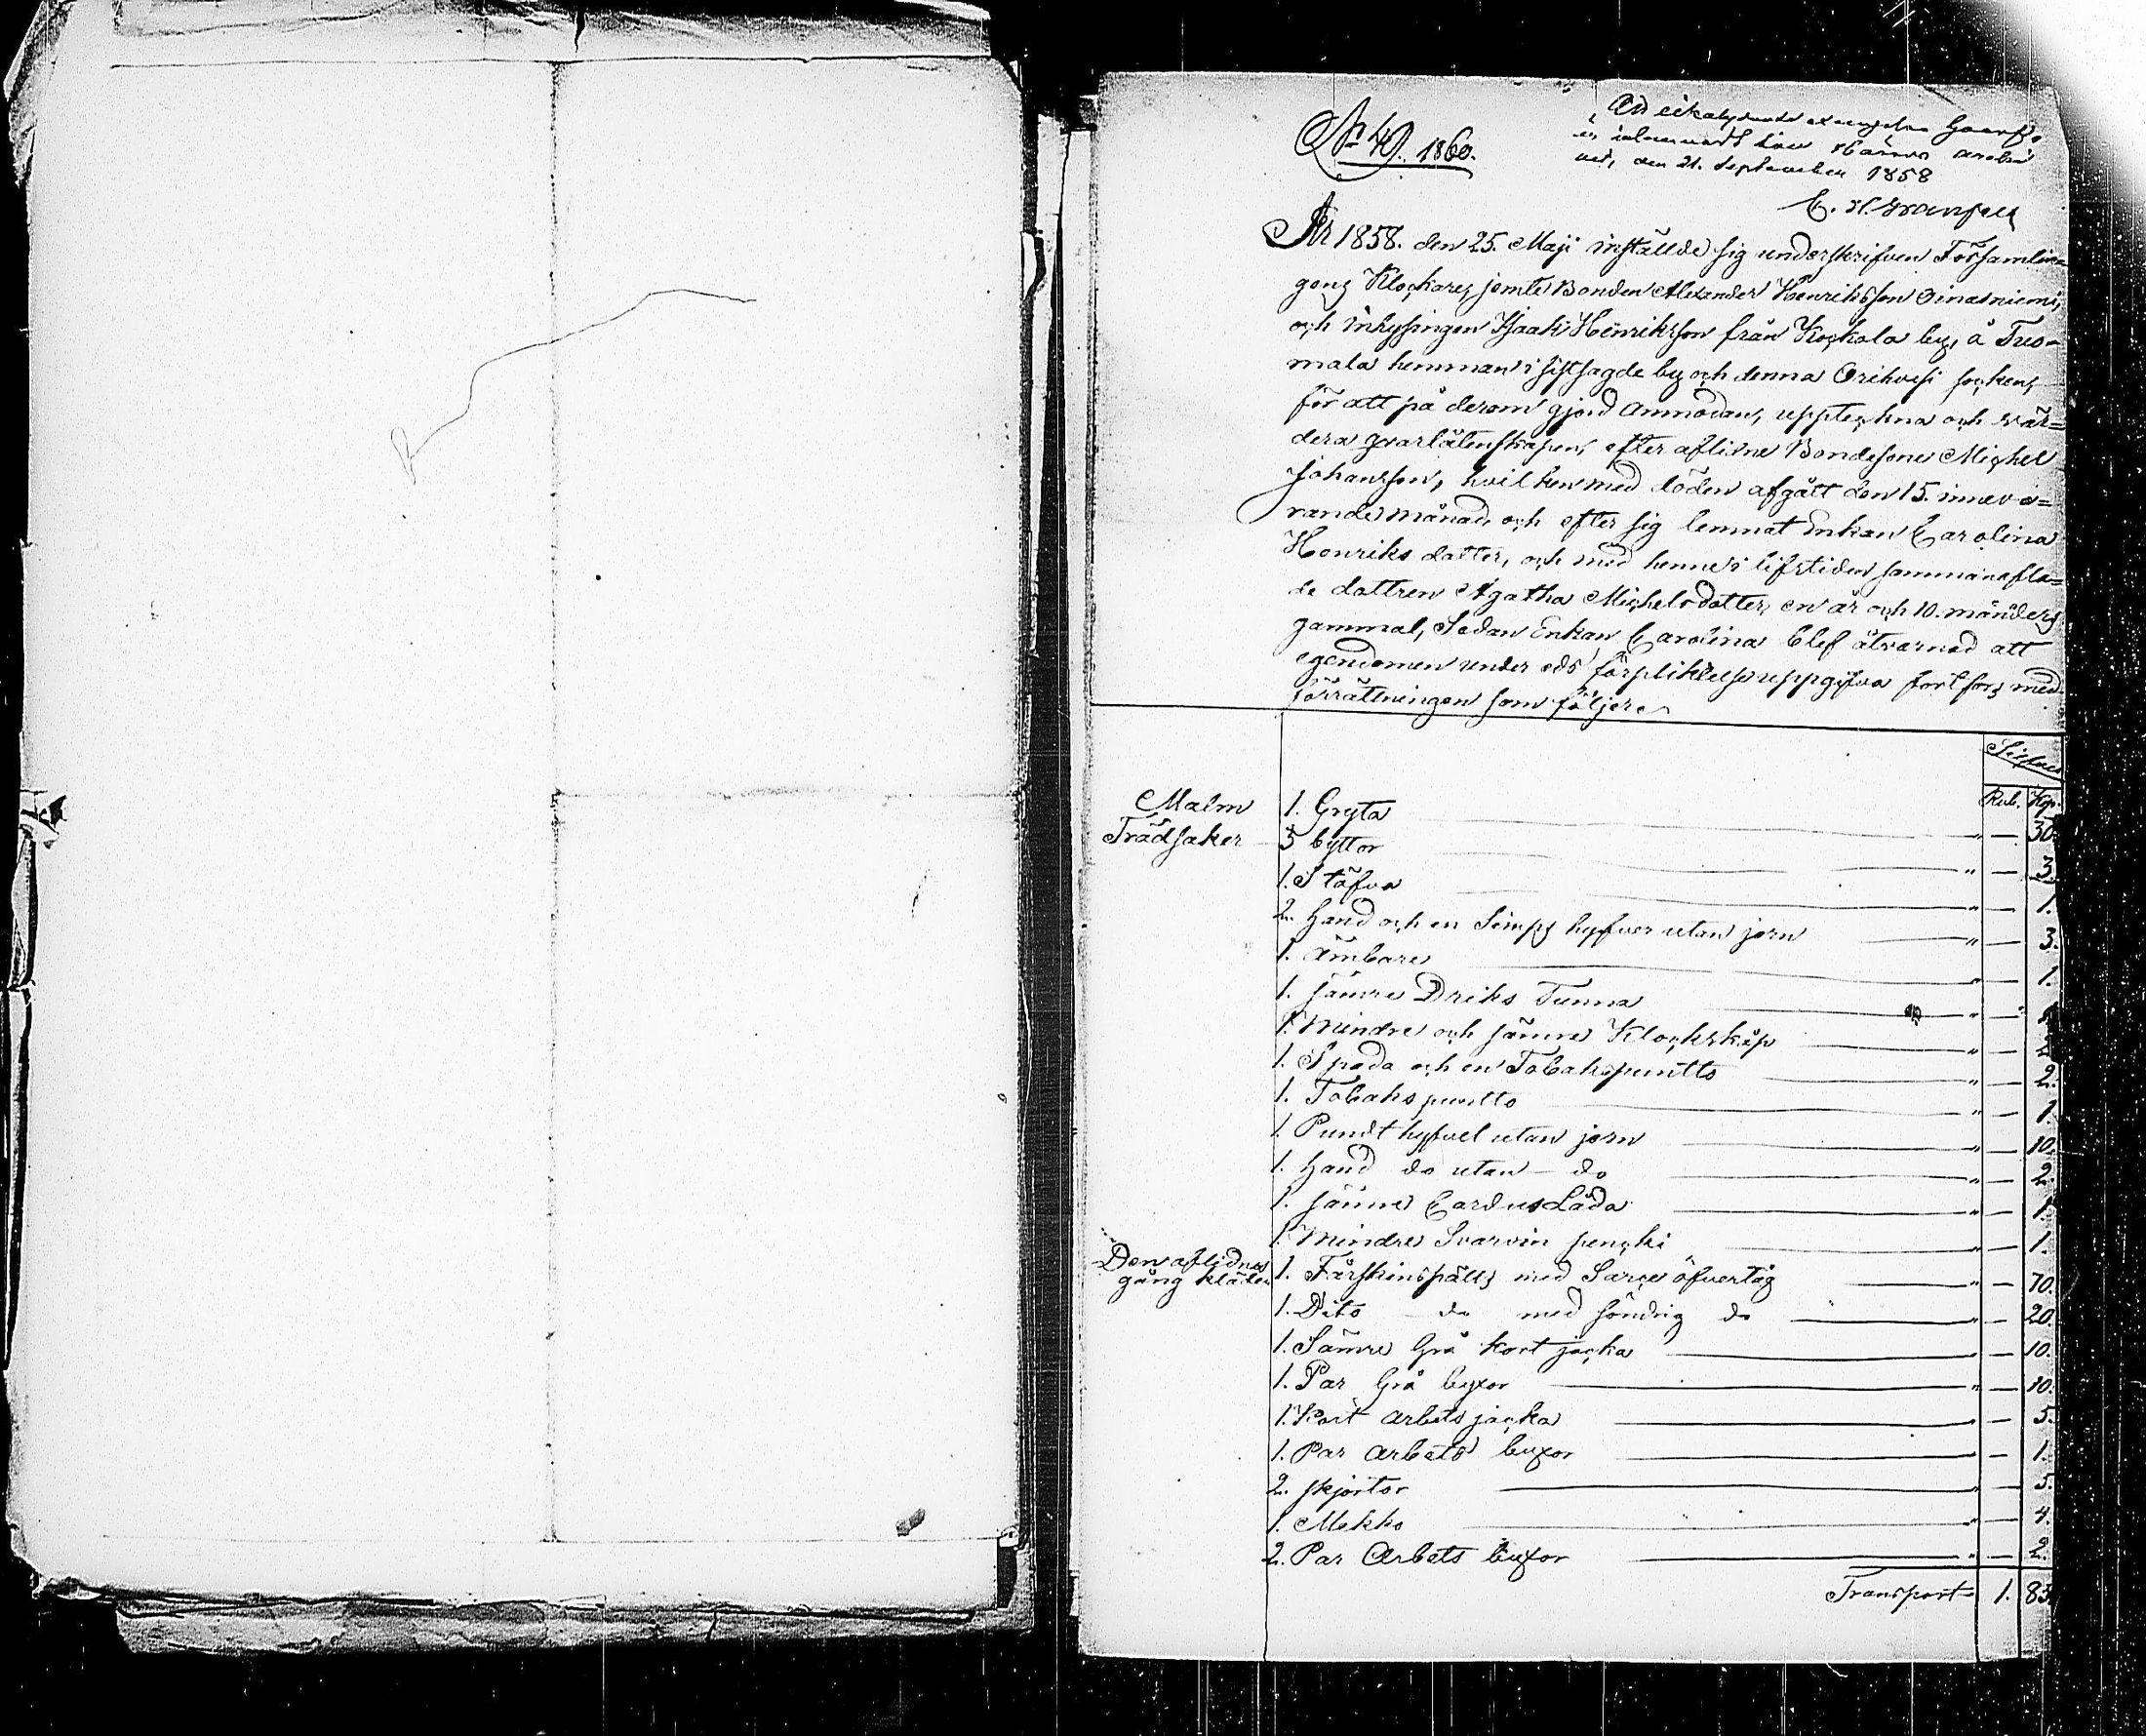 No 49. 1860.
den 21. September 1858
År 1858. den 25. Maji inställde sig underskrifven Församlin=
gens Klockare, jemte Bonden Alexander Henriksson Oinasniemi,
och inhysingen Isaak Henriksson från Kockola by, å Tuo=
mala hemman i sistsagde by och denna Orihvesi socken,
för att på derom gjord anmodan, upptekna och vär=
dera qvarlåtenskapen, efter aflidne Bondesonen Michel
Johansson, hvilken med döden afgått den 15. inneva=
rande månad, och efter sig lemnat Enkan Carolina
Henriks dotter, och med henne i lifstiden sammanafla=
de dottren Agatha Michelsdotter, en år och 10. månders
gammal, Sedan Enkan Carolina blef åtvarnad att
egendomen under eds förpliktelse uppgifva fortfors med
förrättningen som följer
Silfver
Rub. Kop.
Malm 1. Gryta " — 30.
Trädsaker 5 byttor " — 3.
1. Stäfva " — 1.
2. Hand och en Simps hyfver utan jern " — 3.
1. Ämbare " — 1.
1. sämre Driks Tunna " —
1. Mindre och sämre Klockskåp " — 2
1. Spada och en Tobakspuntto " — 2.
1. Tobaks puntto " — 1.
1. Pundt hyfvel utan jern " — 10.
1. Hand do utan — do " — 2.
1. sämre Cardus Låda " — 1.
1. Mindre Svarvin pencki " — 1.
Den aflidnes
gång kläder 1. Fårskinspälts med Sarge öfvertåg " — 70.
1. Dito — do med söndrig do " — 20.
1. Sämre Grå kort jacka " — 10.
1. Par Grå byxor " — 10.
1. Kort arbets jacka " — 5.
1. Par arbets buxor " — 1.
2. skjortor " — 5.
1. Mekko " — 4.
2. Par Arbets buxor " — 2.
Transport 1. 83.